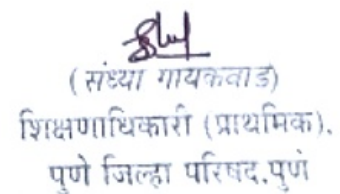 (संध्या गायकवाड)
शिक्षणाधिकारी (प्राथमिक),
पुणे जिल्हा परिषद,पुणे